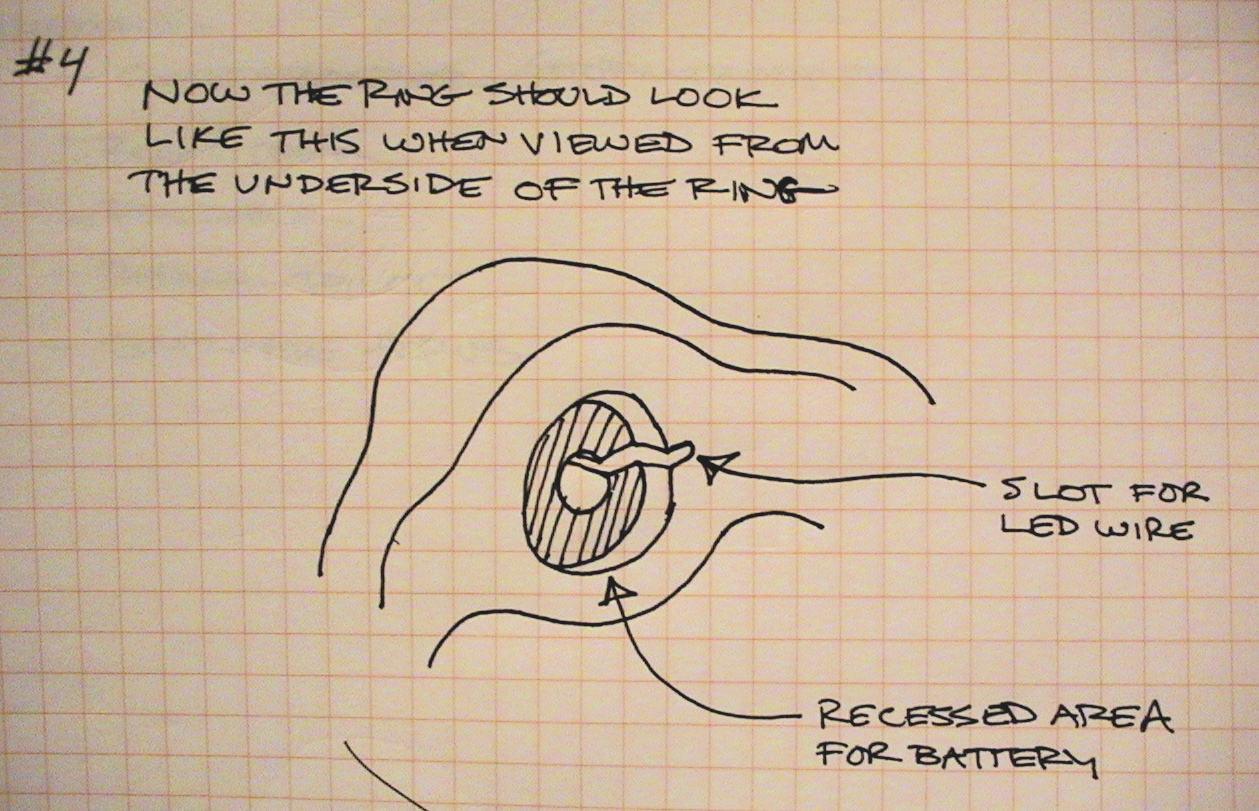 #4
NOW THE RING SHOULD LOOK
LIKE THIS WHEN VIEWED FROM
THE UNDERSIDE OF THE RING
SLOT FOR
LED WIRE
RECESSED AREA
FOR BATTERY